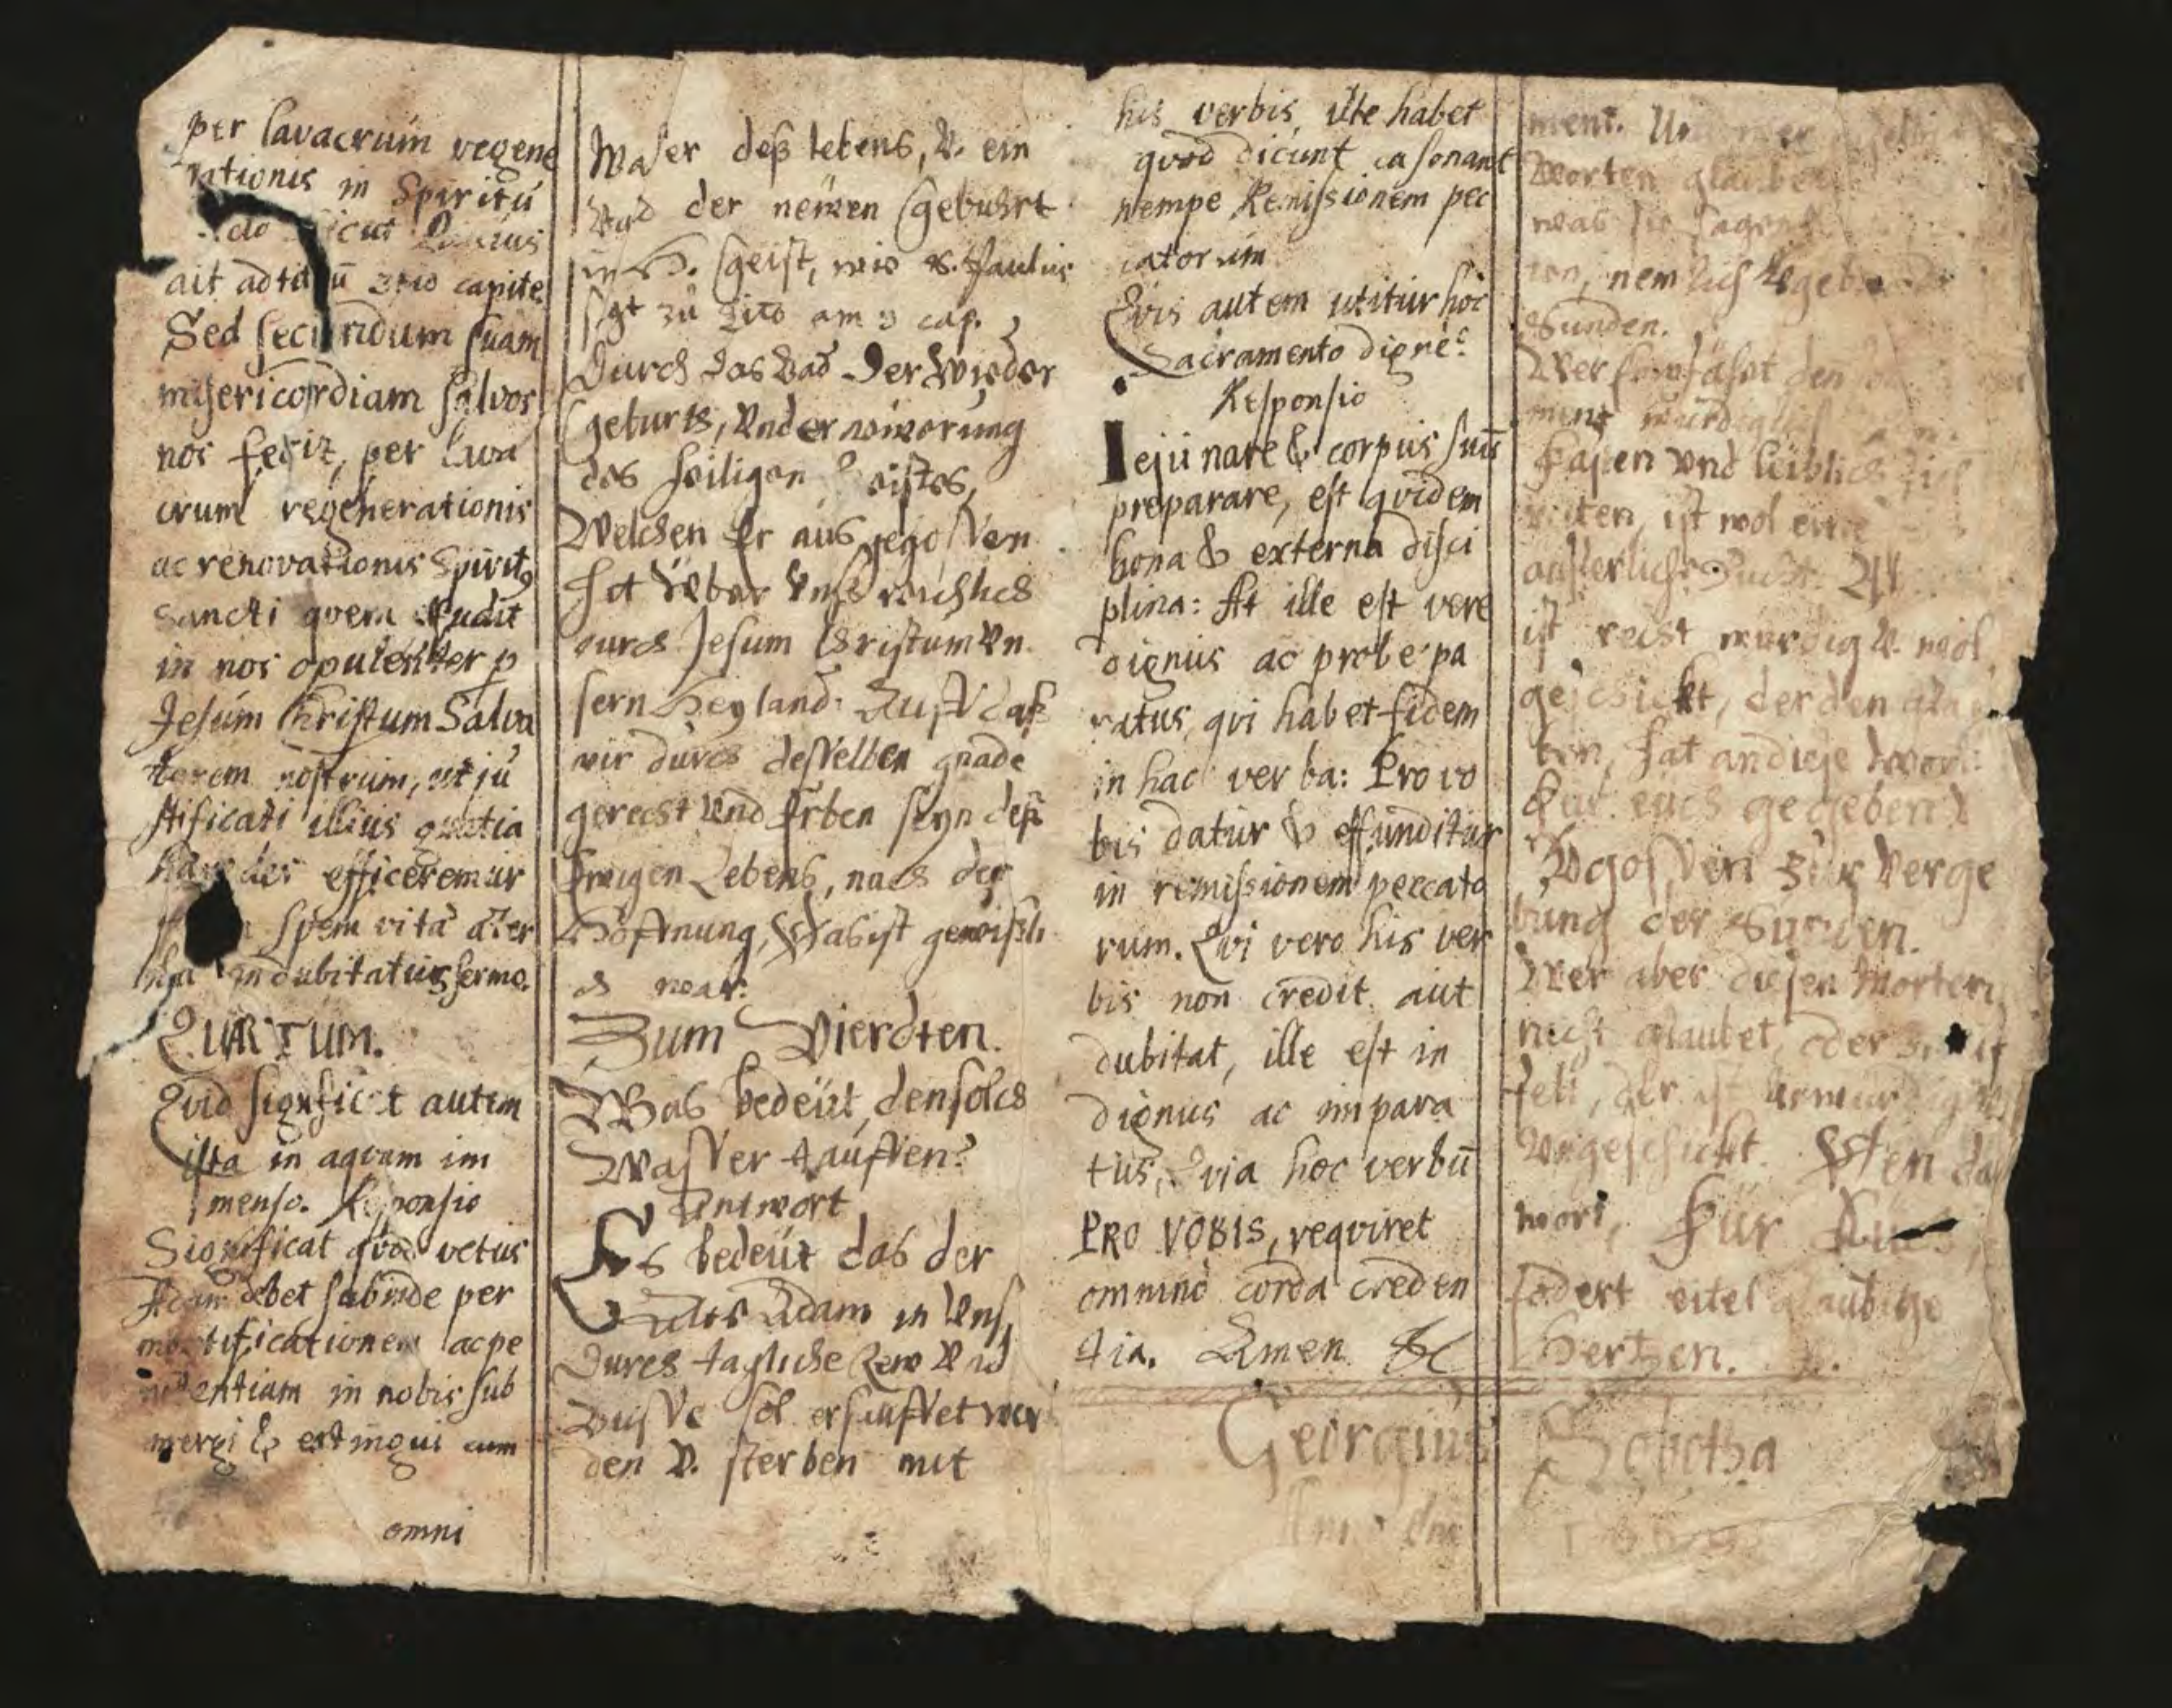 per lavacrum regene
rationis in Spiritu
sicut
ait ad tit u 3tio capite
Sed secundum suam
misericordiam salvos
nos fecit, per lava
crum regenerationis
ac renovationis Spirit9
Sancti qvem effudit
in nos opulenter p
Jesum Christum Salva
torem nostrum, ut ju
stificati illius gratia
haeredes efficeremur
spem vita aeter
indubitatus sermo.
QUARTUM.
Qvid significat autem
ista in aqvam im
menso. Responsio
Significat qvod vetus
Adam debet subinde per
mortificationem ac pe
nitentiam in nobis sub
mergi & extingui cum
omni
Waser deß lebens, V. ein
Bad der newen Geburt
im H. Geist, wie S. Paulus
sagt zu Tito am 3 cap.
Durch das Bad Der Wieder
Geburts, Vnd ernewerung
des heiligen Geistes,
Welchen Er aus gegossen
hat Vber Vns reichlich
durch Jesum Christum Vn
sern Heyland: Auff daß
wir durch desselben gnade
gerecht Vnd Erben seyn deß
Ewigen Lebens, nach der
Hoffnung, Das ist gewißli
ch war.
Zum Vierdten.
Was bedeüt, den solch
Wasser tauffen?
Antwort
Es bedeüt das der
Alte Adam in Vns,
Durch tagliche Rew Vnd
Busse sol erseuffet wer
den V. sterben mit
his verbis, ille habet
qvod dicunt ca sonant
nempe Remissionem pec
catorum
Qvis autem utitur hoc
Sacramento digne?
Responsio
Iejunare & corpus suū
preparare, est qvidem
bona & externa disci
plina: At ille est vere
dignus ac probe pa
ratus, qvi habet fidem
in hac verba: Pro vo
bis datur & effunditur
in remissionem peccato
rum. Qvi vero his ver
bis non credit aut
dubitat, ille est in
dignus ac impara
tus, Qvia hoc verbū
PRO VOBIS, reqviret
omnino corda creden
tia. Amen
Georgius
ment.
Worten glauber
was sie sagen
ten, nemlich Vgeb
Sunden.
Wer empfahet den
ment wurdiglich
Fasten Vnd leiblich
reiten, ist wol eine
ausserliche Zucht.
ist recht wurdig V. wol
geschickt, der den glau
ben, hat an diese Wort:
Für euch gegeben V
Vgossen Zur Verge
bung der Sunden.
Wer aber diesen Worten
nicht glaubet, oder
felt, der ist Vnwurdig
Vngeschickt. Den das
wort, Für Euch,
fodert eitel glaubige
Hertzen.
Sobotha